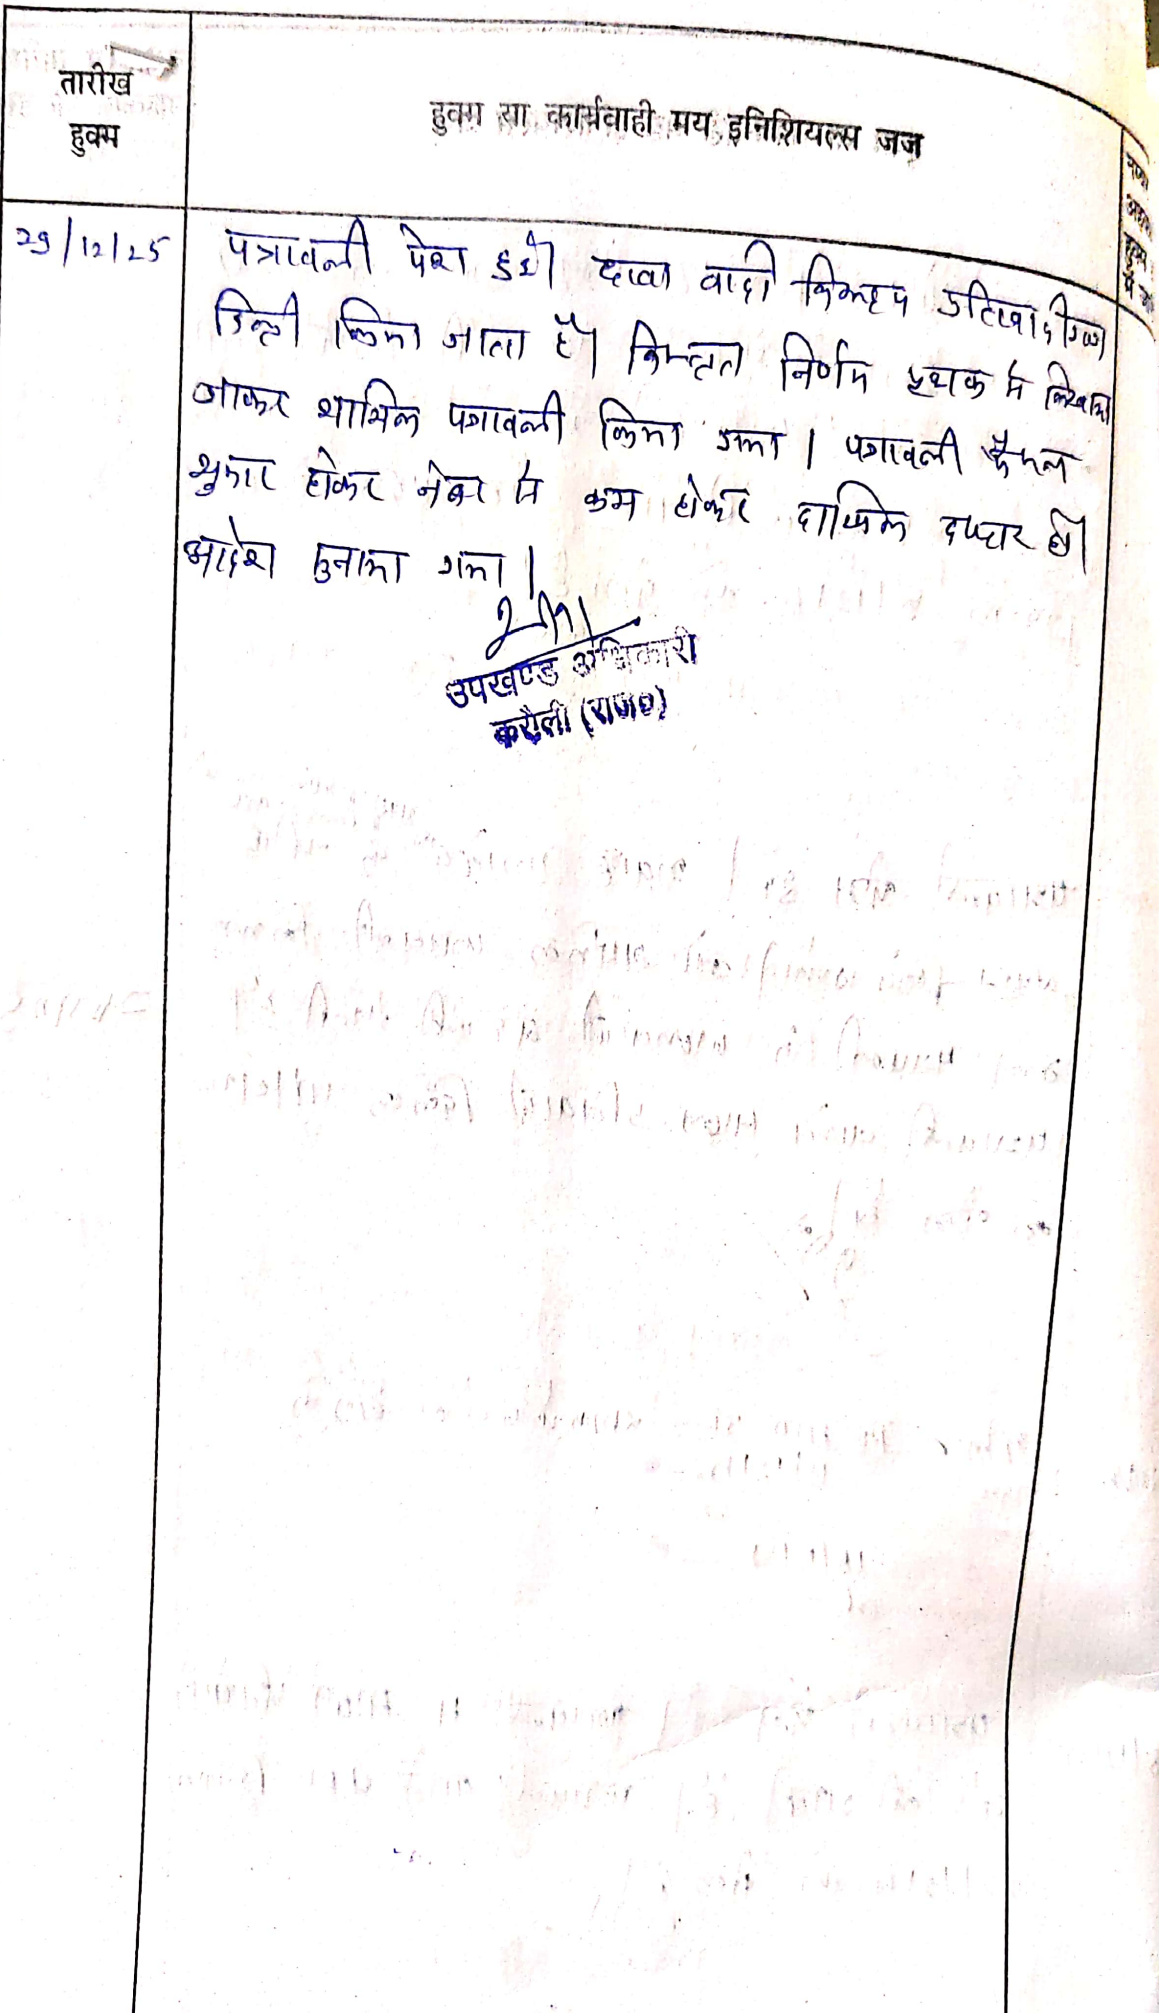 तारीख
हुक्म
हुक्म या कार्यवाही मय इनिशियल्स जज
29/12/25
पत्रावली पेश हुई। दावा वादी विरूद्ध प्रतिवादीगण
डिक्री किया जाता है। विस्तृत निर्णय पृथक से लिखाया
जाकर शामिल पत्रावली किया गया। पत्रावली फैसल
शुमार होकर नंबर से कम होकर दाखिल दफ्तर हो।
आदेश सुनाया गया।
उपखण्ड अधिकारी
करौली (राज०)